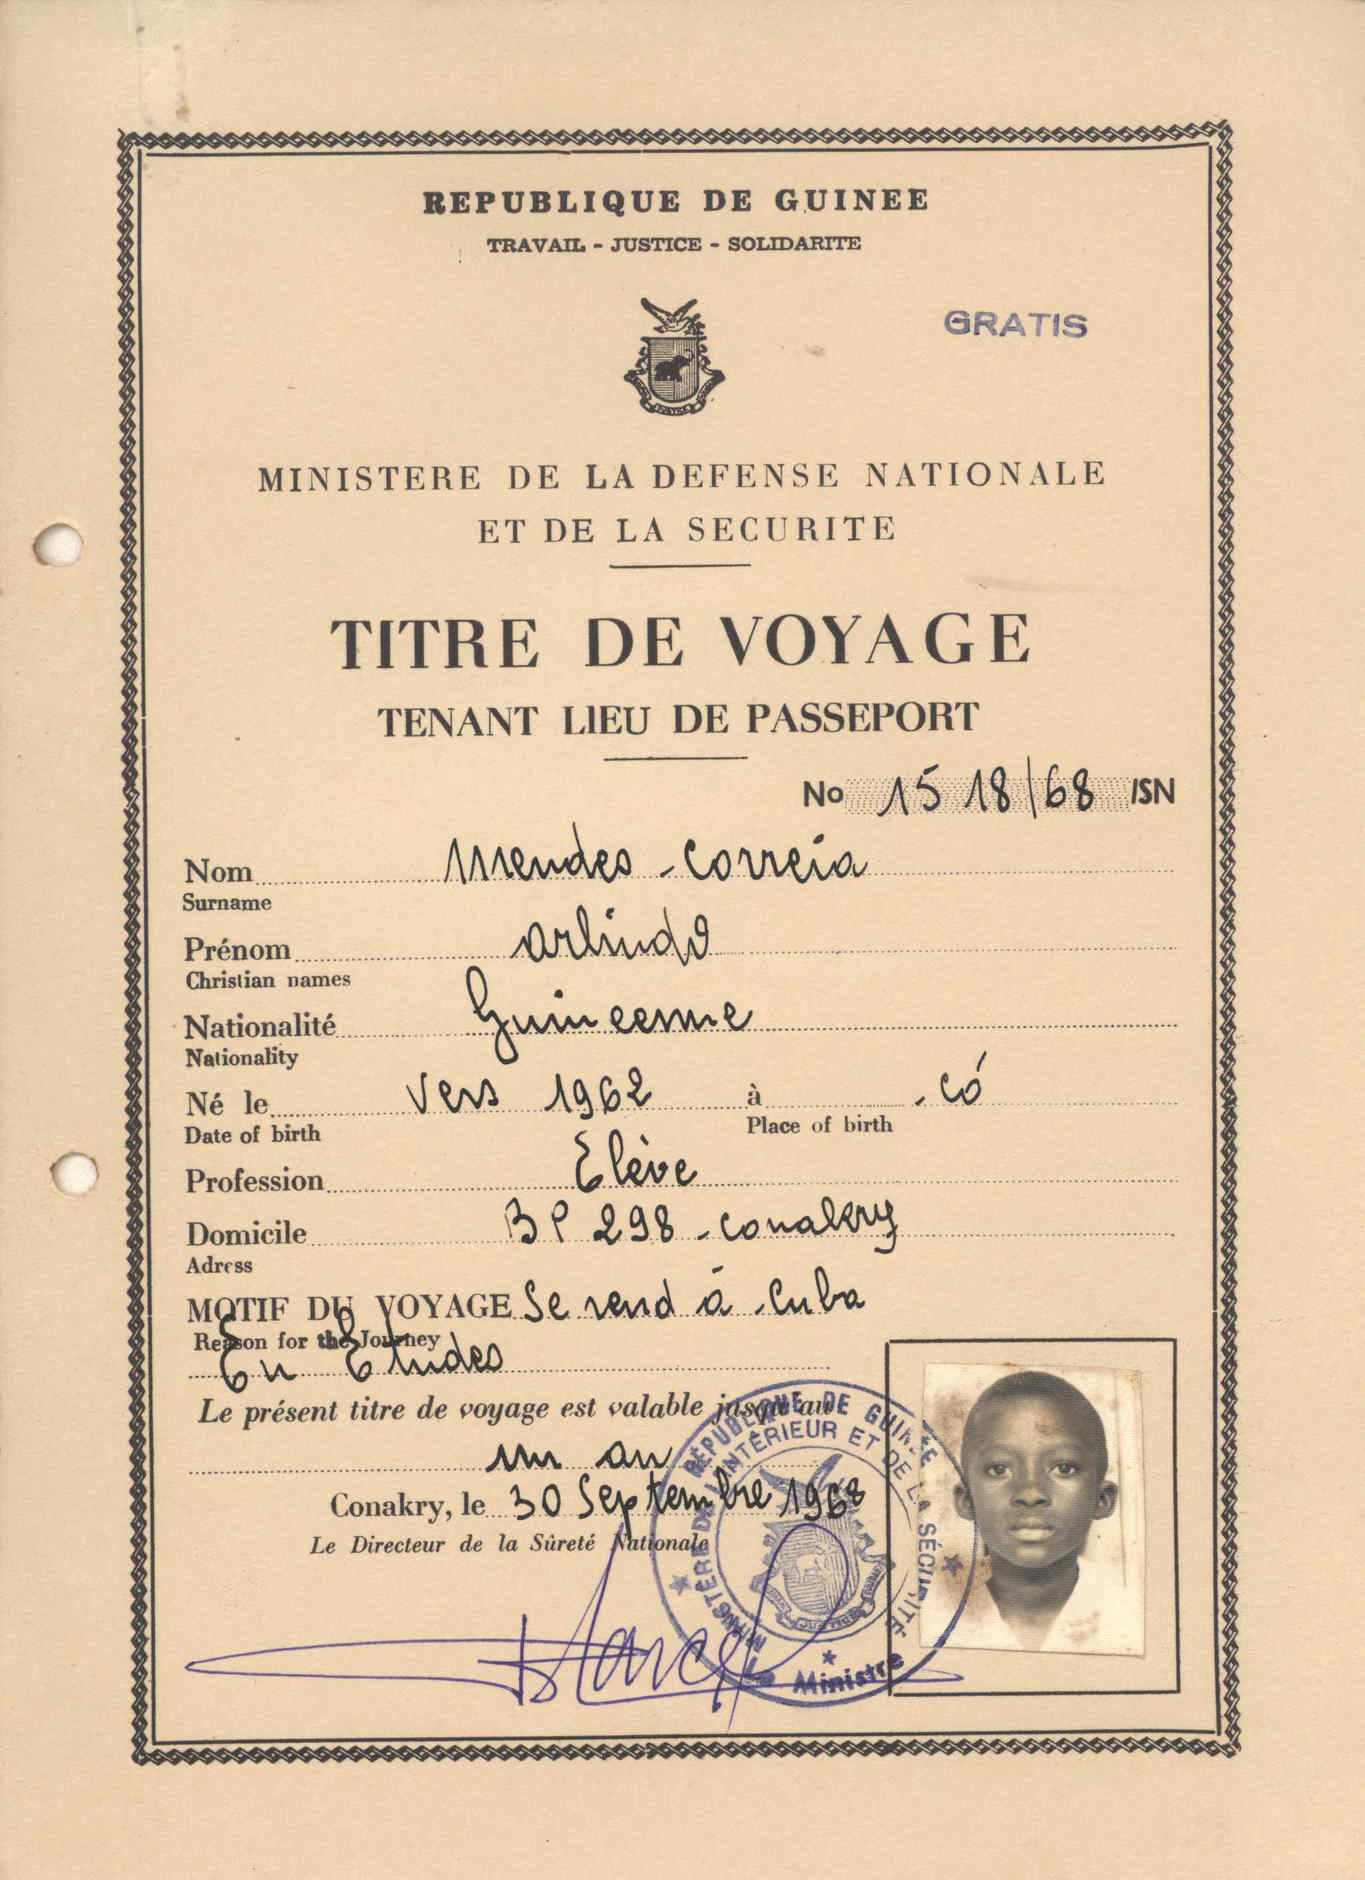 REPUBLIQUE DE GUINEE
TRAVAIL - JUSTICE - SOLIDARITE
GRATIS
MINISTERE DE LA DEFENSE NATIONALE
ET DE LA SECURITE
TITRE DE VOYAGE
TENANT LIEU DE PASSEPORT
No 1518/68 /SN
Nom Mendes - Correia
Surname
Prénom Arlindo
Christian names
Nationalité Guineenne
Nationality
Né le Vers 1962 à Có
Date of birth Place of birth
Profession Elève
Domicile BP 298 - Conakry
Adress
MOTIF DU VOYAGE Se rend à Cuba
Reason for the Journey
En Etudes
Le présent titre de voyage est valable jusqu'au
un an
Conakry, le 30 Septembre 1968
Le Directeur de la Sûreté Nationale
RÉPUBLIQUE DE GUINÉE
MINISTÈRE DE L'INTÉRIEUR ET DE LA SÉCURITÉ
Le Ministre